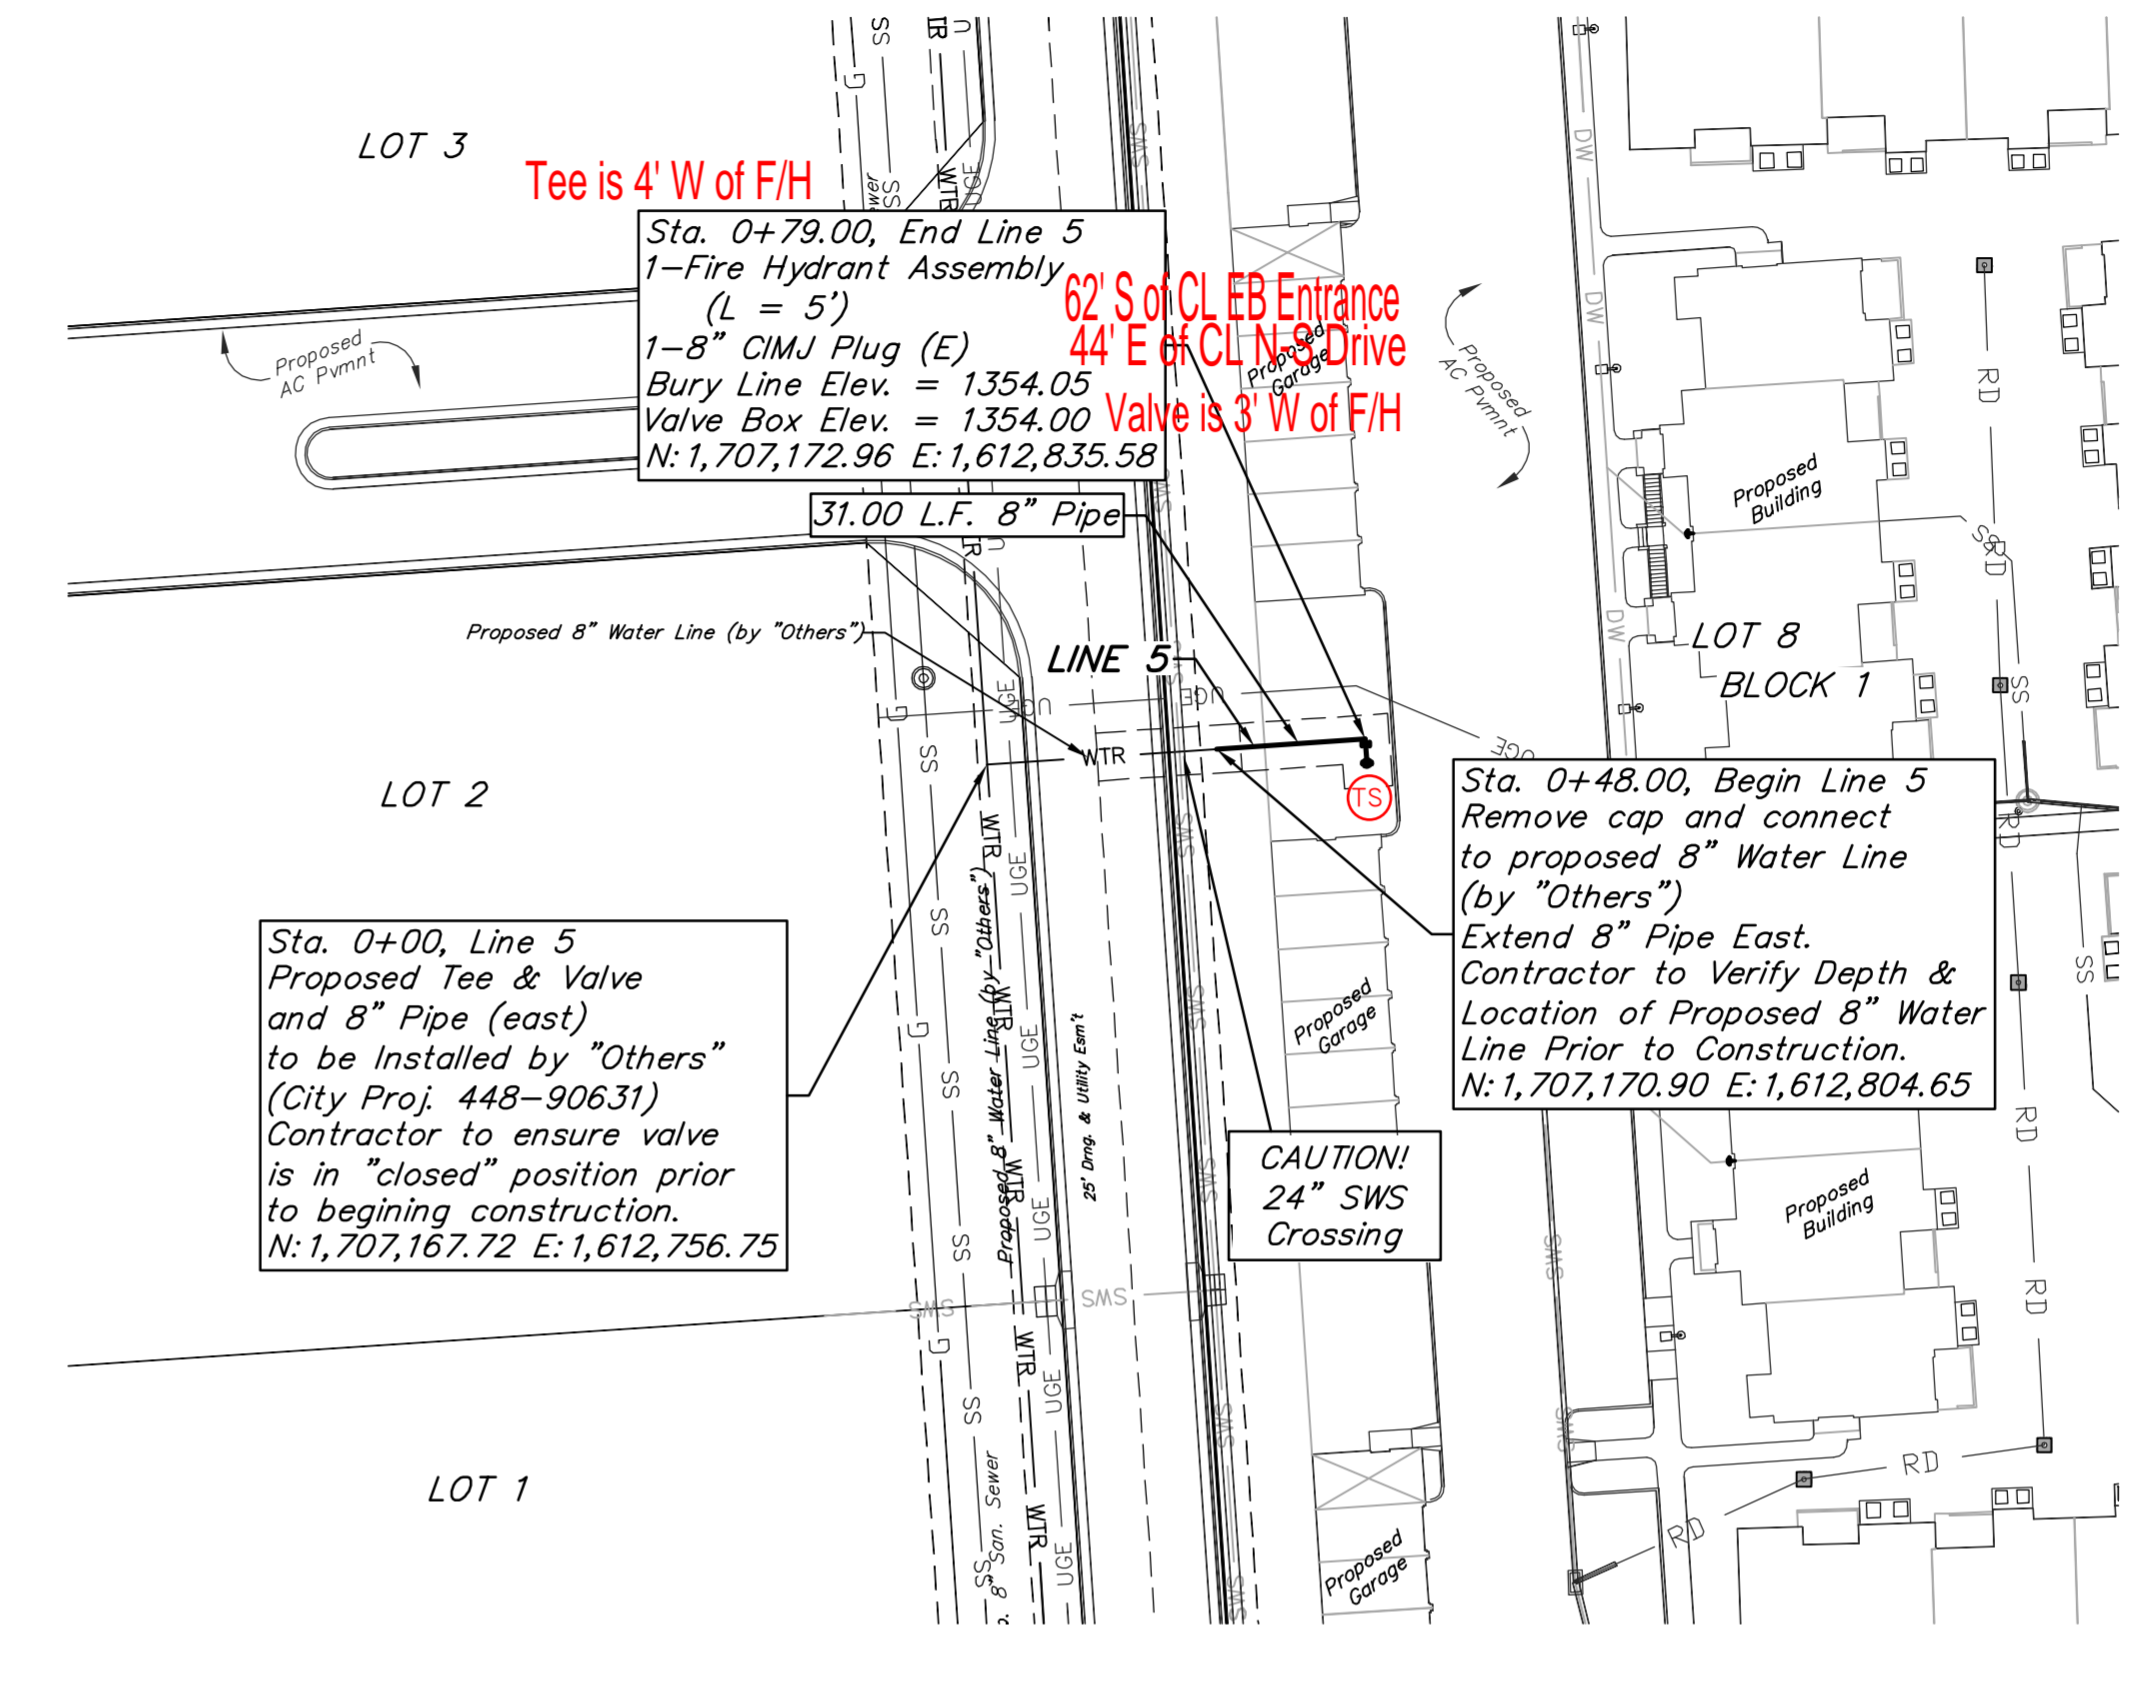 LOT 3
Tee is 4' W of F/H
Sta. 0+79.00, End Line 5
1-Fire Hydrant Assembly
(L = 5')
1-8" CIMJ Plug (E)
Bury Line Elev. = 1354.05
Valve Box Elev. = 1354.00
N: 1,707,172.96 E: 1,612,835.58
62' S of CL EB Entrance
44' E of CL N-S Drive
Valve is 3' W of F/H
31.00 L.F. 8" Pipe
Proposed
AC Pvmnt
Proposed
Garage
Proposed
AC Pvmnt
Proposed
Building
Proposed 8" Water Line (by "Others")
LINE 5
LOT 8
BLOCK 1
WTR
TS
LOT 2
Sta. 0+48.00, Begin Line 5
Remove cap and connect
to proposed 8" Water Line
(by "Others")
Extend 8" Pipe East.
Contractor to Verify Depth &
Location of Proposed 8" Water
Line Prior to Construction.
N: 1,707,170.90 E: 1,612,804.65
Sta. 0+00, Line 5
Proposed Tee & Valve
and 8" Pipe (east)
to be Installed by "Others"
(City Proj. 448-90631)
Contractor to ensure valve
is in "closed" position prior
to begining construction.
N: 1,707,167.72 E: 1,612,756.75
Proposed 8" Water Line (by "Others")
25' Drng. & Utility Esm't
Proposed
Garage
CAUTION!
24" SWS
Crossing
Proposed
Building
LOT 1
8" San. Sewer
Proposed
Garage
G
SS
WTR
UGE
SWS
DW
RD